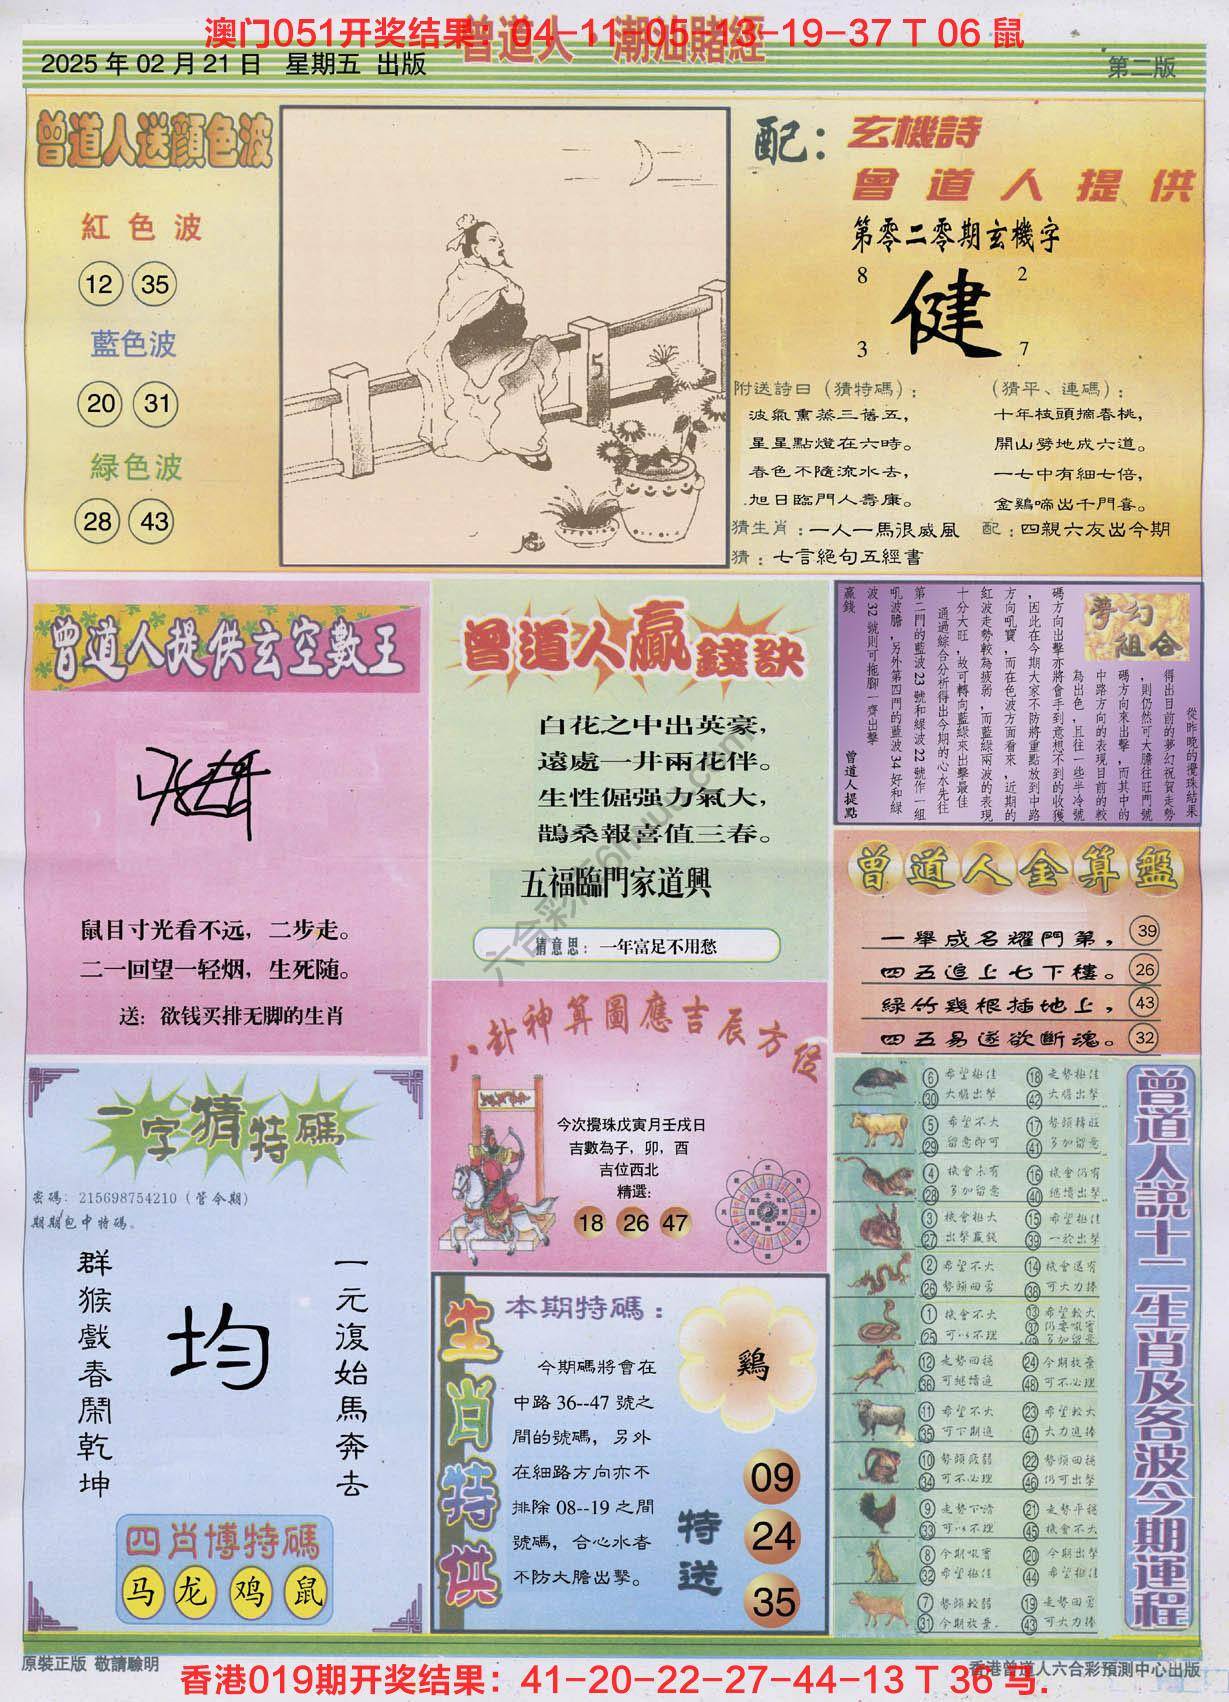 澳门051开奖结果：04-11-05-13-19-37 T 06 鼠
曾道人 潮汕賭經
2025 年 02 月 21 日 星期五 出版
第二版
曾道人送顏色波
紅色波
12 35
藍色波
20 31
緑色波
28 43
5
配：
玄機詩
曾道人提供
第零二零期玄機字
8 2
健
3 7
附送詩曰（猜特碼）：
波氣熏蒸三舊五，
星星點燈在六時。
春色不隨流水去，
旭日臨門人壽康。
（猜平、連碼）：
十年枝頭摘春桃，
開山劈地成六道。
一七中有細七倍，
金鷄啼出千門喜。
猜生肖：一人一馬很威風
配：四親六友出今期
猜：七言絕句五經書
曾道人提供玄空數王
鼠目寸光看不远，二步走。
二一回望一轻烟，生死随。
送：欲钱买排无脚的生肖
曾道人贏錢訣
白花之中出英豪，
遠處一井兩花伴。
生性倔强力氣大，
鵲桑報喜值三春。
五福臨門家道興
猜意思：一年富足不用愁
夢幻組合
從昨晚的攪珠結果
得出目前的夢幻祝賀走勢
，則仍然可大膽往旺門號
碼方向來出擊，而其中的
中路方向的表現目前的較
為出色，且往一些半冷號
碼方向出擊亦將會手到意想不到的收獲
，因此在今期大家不防將重點放到中路
方向吼寶，而在色波方面看來，近期的
紅波走勢較為疲弱，而藍綠兩波的表現
十分大旺，故可轉向藍綠來出擊最佳
通過綜合分析得出今期的心水先往
第二門的藍波 23 號和綠波 22 號作一組
吼波膽，另外第四門的藍波 34 好和綠
波 32 號則可拖腳一齊出擊
贏錢
曾道人提點
曾道人金算盤
一舉成名耀門第， 39
四五追上七下樓。 26
緑竹幾根插地上， 43
四五易送欲斷魂。 32
一字猜特碼
密碼：215698754210（管今期）
期期包中特碼。
群猴戲春鬧乾坤
均
一元復始馬奔去
四肖博特碼
马 龙 鸡 鼠
八卦神算圖應吉辰方位
今次攪珠戊寅月壬戌日
吉數為子，卯，酉
吉位西北
精選：
18 26 47
生肖特供
本期特碼：
今期碼將會在
中路 36--47 號之
間的號碼，另外
在細路方向亦不
排除 08--19 之間
號碼，合心水者
不防大膽出擊。
鷄
特送
09
24
35
曾道人説十二生肖及各波今期運程
6 希望極佳 18 走勢極佳
30 大膽出擊 42 大膽出擊
5 希望不大 17 勢頭轉旺
29 留意即可 41 多加留意
4 機會未有 16 機會仍有
28 多加留意 40 繼續出擊
3 機會極大 15 希望極佳
27 出擊贏錢 39 一於出擊
2 希望不大 14 機會還有
26 勢頭回勇 38 可大力捧
1 機會不大 13 希望較大
25 可以不理 37 仍要吼實
49 多加留意
12 走勢回穩 24 今期放棄
36 可繼續追 48 可不必理
11 希望不大 23 希望較大
35 可下期追 47 大力追捧
10 勢頭疲弱 22 勢頭回穩
34 可不必理 46 仍可出擊
9 走勢下滑 21 走勢平穩
33 可以不理 45 機會不大
8 今期吼實 20 今期出擊
32 希望極佳 44 希望極佳
7 勢頭較弱 19 走勢回勇
31 今期放棄. 43 可大力捧
六合彩56mu.com
原裝正版 敬請驗明
香港曾道人六合彩預測中心出版
香港019期开奖结果：41-20-22-27-44-13 T 36 马.